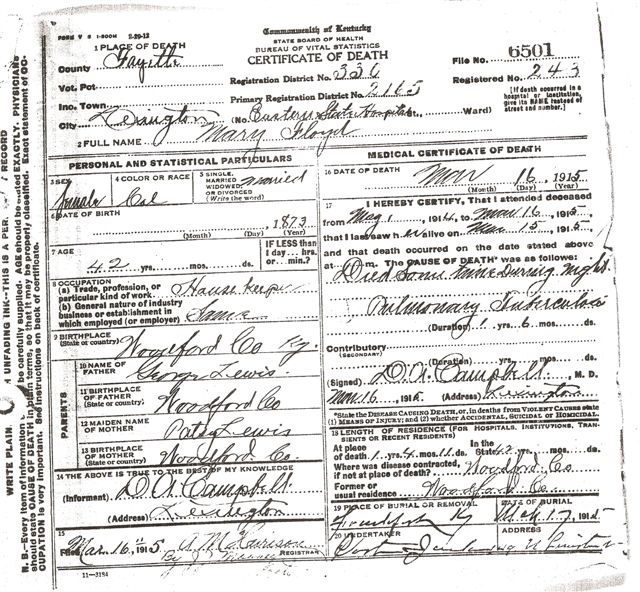 FORM V S 1-500M 2-20-12
Commonwealth of Kentucky
STATE BOARD OF HEALTH
BUREAU OF VITAL STATISTICS
CERTIFICATE OF DEATH
1 PLACE OF DEATH
County Fayette
Vot. Pct
Inc. Town
City Lexington (No. Eastern State Hospital St. Ward)
Registration District No. 336
Primary Registration District No. 2165
File No. 6501
Registered No. 243
[If death occurred in a hospital or institution, give its NAME instead of street and number.]
2 FULL NAME Mary Floyd
PERSONAL AND STATISTICAL PARTICULARS
3 SEX Female
4 COLOR OR RACE Col
5 SINGLE, MARRIED WIDOWED OR DIVORCED (Write the word) Married
6 DATE OF BIRTH 1873
(Month) (Day) (Year)
7 AGE 42 yrs. mos. ds.
IF LESS than 1 day.. hrs. or.. min.?
8 OCCUPATION
(a) Trade, profession, or particular kind of work House keeper
(b) General nature of industry business or establishment in which employed (or employer) Same
9 BIRTHPLACE (State or country) Woodford Co Ky.
PARENTS
10 NAME OF FATHER George Lewis
11 BIRTHPLACE OF FATHER (State or country) Woodford Co
12 MAIDEN NAME OF MOTHER Patsy Lewis
13 BIRTHPLACE OF MOTHER (State or country) Woodford Co.
14 THE ABOVE IS TRUE TO THE BEST OF MY KNOWLEDGE
(Informant) D. A. Campbell
(Address) Lexington
15
Filed Mar. 16 1915
REGISTRAR
11-3184
MEDICAL CERTIFICATE OF DEATH
16 DATE OF DEATH Mar 16 1915
(Month) (Day) (Year)
17 I HEREBY CERTIFY, That I attended deceased
from 1, 1914, to Mar 16, 1915,
that I last saw h alive on Mar 15, 1915,
and that death occurred on the date stated above
at m. The CAUSE OF DEATH* was as follows:
Died some time during night
Pulmonary Tuberculosis
(Duration) 1 yrs. 6 mos. ds.
Contributory
(SECONDARY)
(Duration) yrs. mos. ds.
(Signed) D. A. Campbell, M. D.
Mar 16, 1915 (Address) Lexington
*State the DISEASE CAUSING DEATH, or, in deaths from VIOLENT CAUSES state (1) MEANS OF INJURY; and (2) whether ACCIDENTAL, SUICIDAL or HOMICIDAL.
18 LENGTH OF RESIDENCE (FOR HOSPITALS, INSTITUTIONS, TRANSIENTS OR RECENT RESIDENTS)
At place of death 1 yrs. 4 mos. 11 ds. In the State 42 yrs. mos. ds.
Where was disease contracted, if not at place of death? Woodford Co
Former or usual residence Woodford Co
19 PLACE OF BURIAL OR REMOVAL Frankfort Ky
DATE OF BURIAL Mch 17, 1915
20 UNDERTAKER
ADDRESS
WRITE PLAIN UNFADING INK—THIS IS A PER RECORD
N. B.—Every item of information be carefully supplied. AGE should be stated EXACTLY. PHYSICIANS
should state CAUSE OF DEATH in plain terms, so that it may be properly classified. Exact statement of OC-
CUPATION is very important. See instructions on back of certificate.